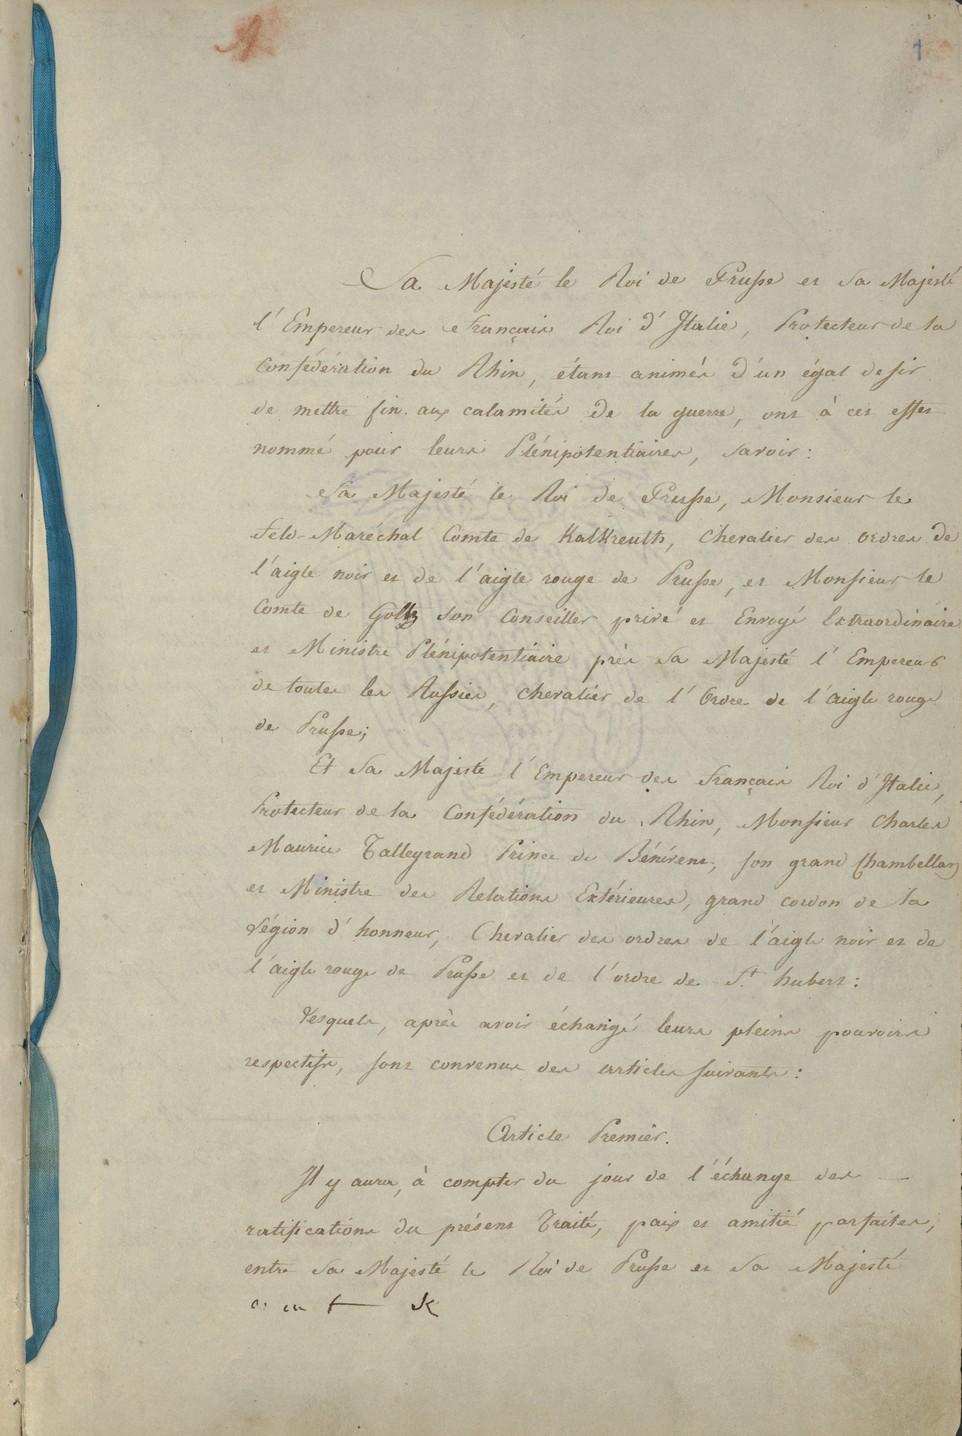 1
Sa Majesté le Roi de Prusse et Sa Majesté
l'Empereur des Français Roi d'Italie, Protecteur de la
Confédération du Rhin, étant animés d'un égal desir
de mettre fin aux calamités de la guerre, ont à cet effet
nommé pour leurs Plénipotentiaires, savoir:
Sa Majesté le Roi de Prusse, Monsieur le
Feld-Maréchal Comte de Kalkreuth, Chevalier des ordres de
l'aigle noir et de l'aigle rouge de Prusse, et Monsieur le
Comte de Goltz son Conseiller privé et Envoyé Extraordinaire
et Ministre Plénipotentiaire près Sa Majesté l'Empereur
de toutes les Russies, chevalier de l'Ordre de l'aigle rouge
de Prusse;
Et Sa Majesté l'Empereur des Français Roi d'Italie,
Protecteur de la Confédération du Rhin, Monsieur Charles
Maurice Talleyrand Prince de Bénévent, son grand Chambellan
et Ministre des Relations Extérieures, grand cordon de la
Légion d'honneur, Chevalier des ordres de l'aigle noir et de
l'aigle rouge de Prusse et de l'ordre de St. hubert:
Lesquels, après avoir échangé leurs pleins pouvoirs
respectifs, sont convenus des articles suivants:
Article Premier.
Il y aura, à compter du jour de l'échange des
ratifications du présent Traité, paix et amitié parfaites,
entre Sa Majesté le Roi de Prusse et Sa Majesté